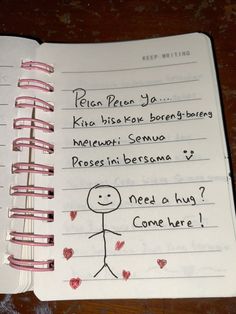 KEEP WRITING
Pelan Pelan ya...
Kita bisa kok bareng-bareng
melewati Semua
Proses ini bersama
need a hug?
Come here!